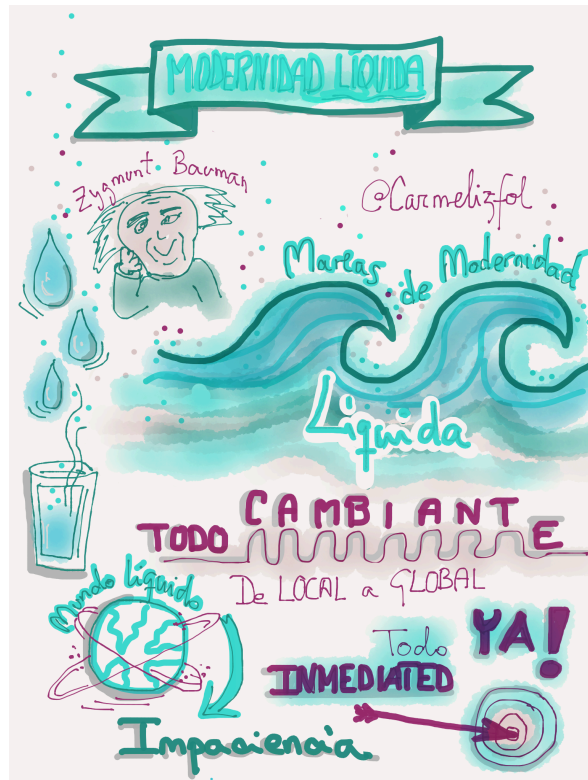 MODERNIDAD LÍQUIDA
Zygmunt Bauman
@Carmelizfol
Mareas de Modernidad
Líquida
TODO CAMBIANTE
De LOCAL a GLOBAL
Mundo líquido
Todo YA!
INMEDIATED
Impaciencia